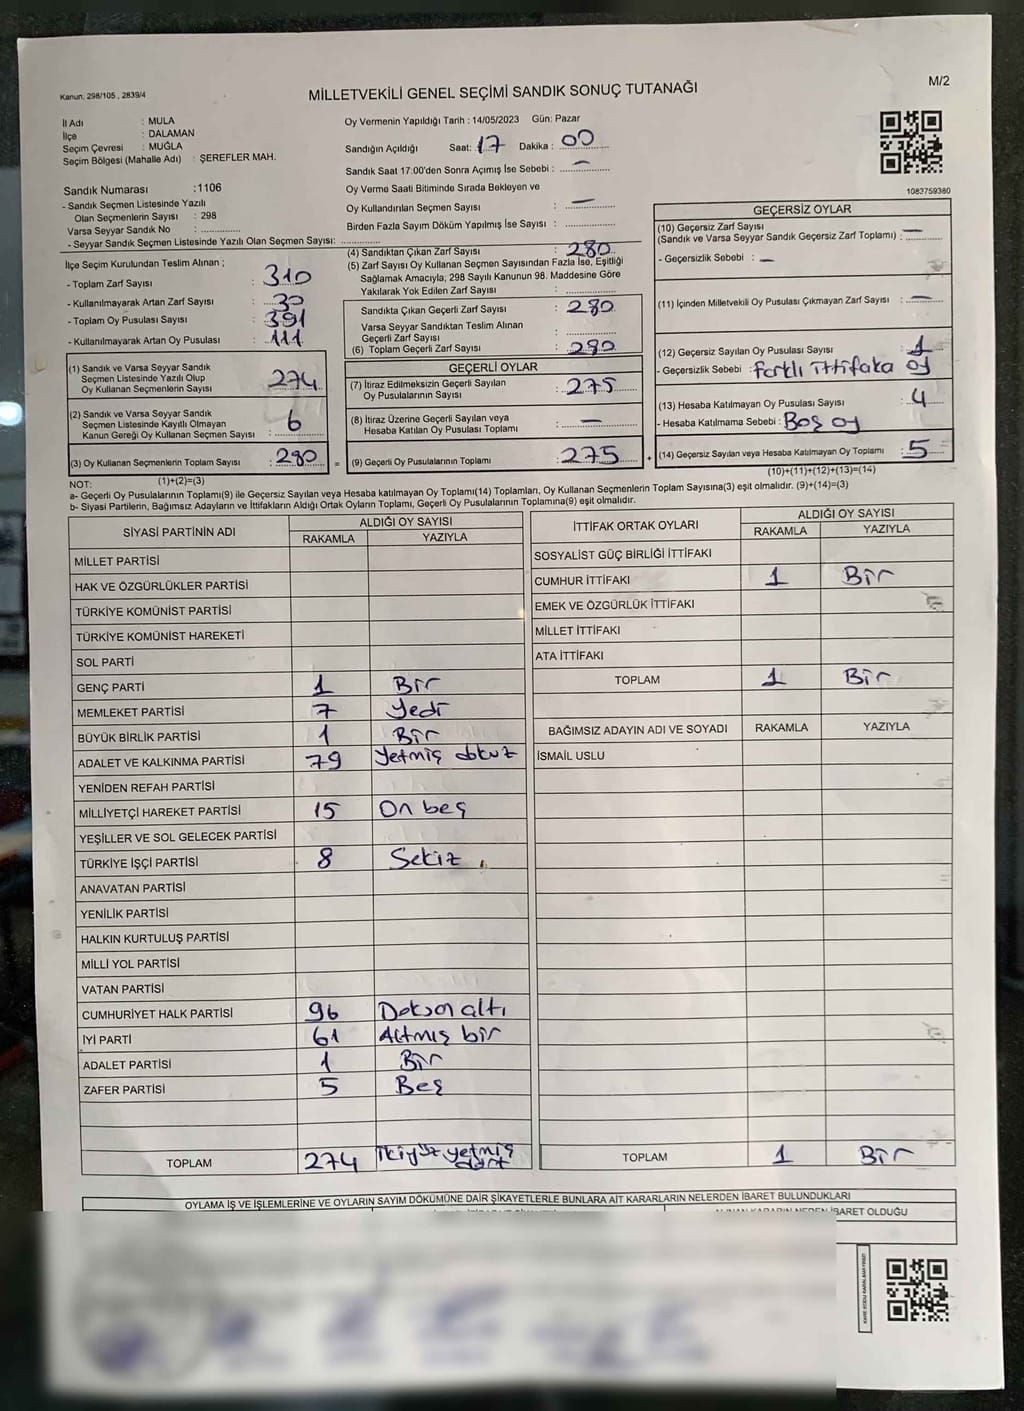 Kanun, 298/105 , 2839/4
M/2
MİLLETVEKİLİ GENEL SEÇİMİ SANDIK SONUÇ TUTANAĞI
İl Adı : MULA
İlçe : DALAMAN
Seçim Çevresi : MUĞLA
Seçim Bölgesi (Mahalle Adı) : ŞEREFLER MAH.
Sandık Numarası :1106
- Sandık Seçmen Listesinde Yazılı
Olan Seçmenlerin Sayısı : 298
Varsa Seyyar Sandık No :
- Seyyar Sandık Seçmen Listesinde Yazılı Olan Seçmen Sayısı:
Oy Vermenin Yapıldığı Tarih : 14/05/2023 Gün: Pazar
Sandığın Açıldığı Saat: 17 Dakika : 00
Sandık Saat 17:00'den Sonra Açımış İse Sebebi : —
Oy Verme Saati Bitiminde Sırada Bekleyen ve
Oy Kullandırılan Seçmen Sayısı : —
Birden Fazla Sayım Döküm Yapılmış İse Sayısı :
1083759380
İlçe Seçim Kurulundan Teslim Alınan ;
- Toplam Zarf Sayısı : 310
- Kullanılmayarak Artan Zarf Sayısı : 30
- Toplam Oy Pusulası Sayısı : 391
- Kullanılmayarak Artan Oy Pusulası : 111
(1) Sandık ve Varsa Seyyar Sandık
Seçmen Listesinde Yazılı Olup
Oy Kullanan Seçmenlerin Sayısı : 274
(2) Sandık ve Varsa Seyyar Sandık
Seçmen Listesinde Kayıtlı Olmayan
Kanun Gereği Oy Kullanan Seçmen Sayısı : 6
(3) Oy Kullanan Seçmenlerin Toplam Sayısı : 280
(1)+(2)=(3)
(4) Sandıktan Çıkan Zarf Sayısı : 280
(5) Zarf Sayısı Oy Kullanan Seçmen Sayısından Fazla İse, Eşitliği
Sağlamak Amacıyla; 298 Sayılı Kanunun 98. Maddesine Göre
Yakılarak Yok Edilen Zarf Sayısı :
Sandıkta Çıkan Geçerli Zarf Sayısı : 280
Varsa Seyyar Sandıktan Teslim Alınan
Geçerli Zarf Sayısı :
(6) Toplam Geçerli Zarf Sayısı : 280
GEÇERLİ OYLAR
(7) İtiraz Edilmeksizin Geçerli Sayılan
Oy Pusulalarının Sayısı : 275
(8) İtiraz Üzerine Geçerli Sayılan veya
Hesaba Katılan Oy Pusulası Toplamı : —
= (9) Geçerli Oy Pusulalarının Toplamı : 275 +
GEÇERSİZ OYLAR
(10) Geçersiz Zarf Sayısı
(Sandık ve Varsa Seyyar Sandık Geçersiz Zarf Toplamı) : —
- Geçersizlik Sebebi : —
(11) İçinden Milletvekili Oy Pusulası Çıkmayan Zarf Sayısı : —
(12) Geçersiz Sayılan Oy Pusulası Sayısı : 1
- Geçersizlik Sebebi : farklı ittifaka oy
(13) Hesaba Katılmayan Oy Pusulası Sayısı : 4
- Hesaba Katılmama Sebebi : Boş oy
(14) Geçersiz Sayılan veya Hesaba Katılmayan Oy Toplamı : 5
(10)+(11)+(12)+(13)=(14)
NOT:
a- Geçerli Oy Pusulalarının Toplamı(9) ile Geçersiz Sayılan veya Hesaba katılmayan Oy Toplamı(14) Toplamları, Oy Kullanan Seçmenlerin Toplam Sayısına(3) eşit olmalıdır. (9)+(14)=(3)
b- Siyasi Partilerin, Bağımsız Adayların ve İttifakların Aldığı Ortak Oyların Toplamı, Geçerli Oy Pusulalarının Toplamına(9) eşit olmalıdır.
SİYASİ PARTİNİN ADI ALDIĞI OY SAYISI
RAKAMLA YAZIYLA
MİLLET PARTİSİ
HAK VE ÖZGÜRLÜKLER PARTİSİ
TÜRKİYE KOMÜNİST PARTİSİ
TÜRKİYE KOMÜNİST HAREKETİ
SOL PARTİ
GENÇ PARTİ 1 Bir
MEMLEKET PARTİSİ 7 Yedi
BÜYÜK BİRLİK PARTİSİ 1 Bir
ADALET VE KALKINMA PARTİSİ 79 Yetmiş dokuz
YENİDEN REFAH PARTİSİ
MİLLİYETÇİ HAREKET PARTİSİ 15 On beş
YEŞİLLER VE SOL GELECEK PARTİSİ
TÜRKİYE İŞÇİ PARTİSİ 8 Sekiz
ANAVATAN PARTİSİ
YENİLİK PARTİSİ
HALKIN KURTULUŞ PARTİSİ
MİLLİ YOL PARTİSİ
VATAN PARTİSİ
CUMHURİYET HALK PARTİSİ 96 Doksan altı
İYİ PARTİ 61 Altmış bir
ADALET PARTİSİ 1 Bir
ZAFER PARTİSİ 5 Beş
TOPLAM 274 ikiyüz yetmiş dört
İTTİFAK ORTAK OYLARI ALDIĞI OY SAYISI
RAKAMLA YAZIYLA
SOSYALİST GÜÇ BİRLİĞİ İTTİFAKI
CUMHUR İTTİFAKI 1 Bir
EMEK VE ÖZGÜRLÜK İTTİFAKI
MİLLET İTTİFAKI
ATA İTTİFAKI
TOPLAM 1 Bir
BAĞIMSIZ ADAYIN ADI VE SOYADI RAKAMLA YAZIYLA
İSMAİL USLU
TOPLAM 1 Bir
OYLAMA İŞ VE İŞLEMLERİNE VE OYLARIN SAYIM DÖKÜMÜNE DAİR ŞİKAYETLERLE BUNLARA AİT KARARLARIN NELERDEN İBARET BULUNDUKLARI
İBARET OLDUĞU